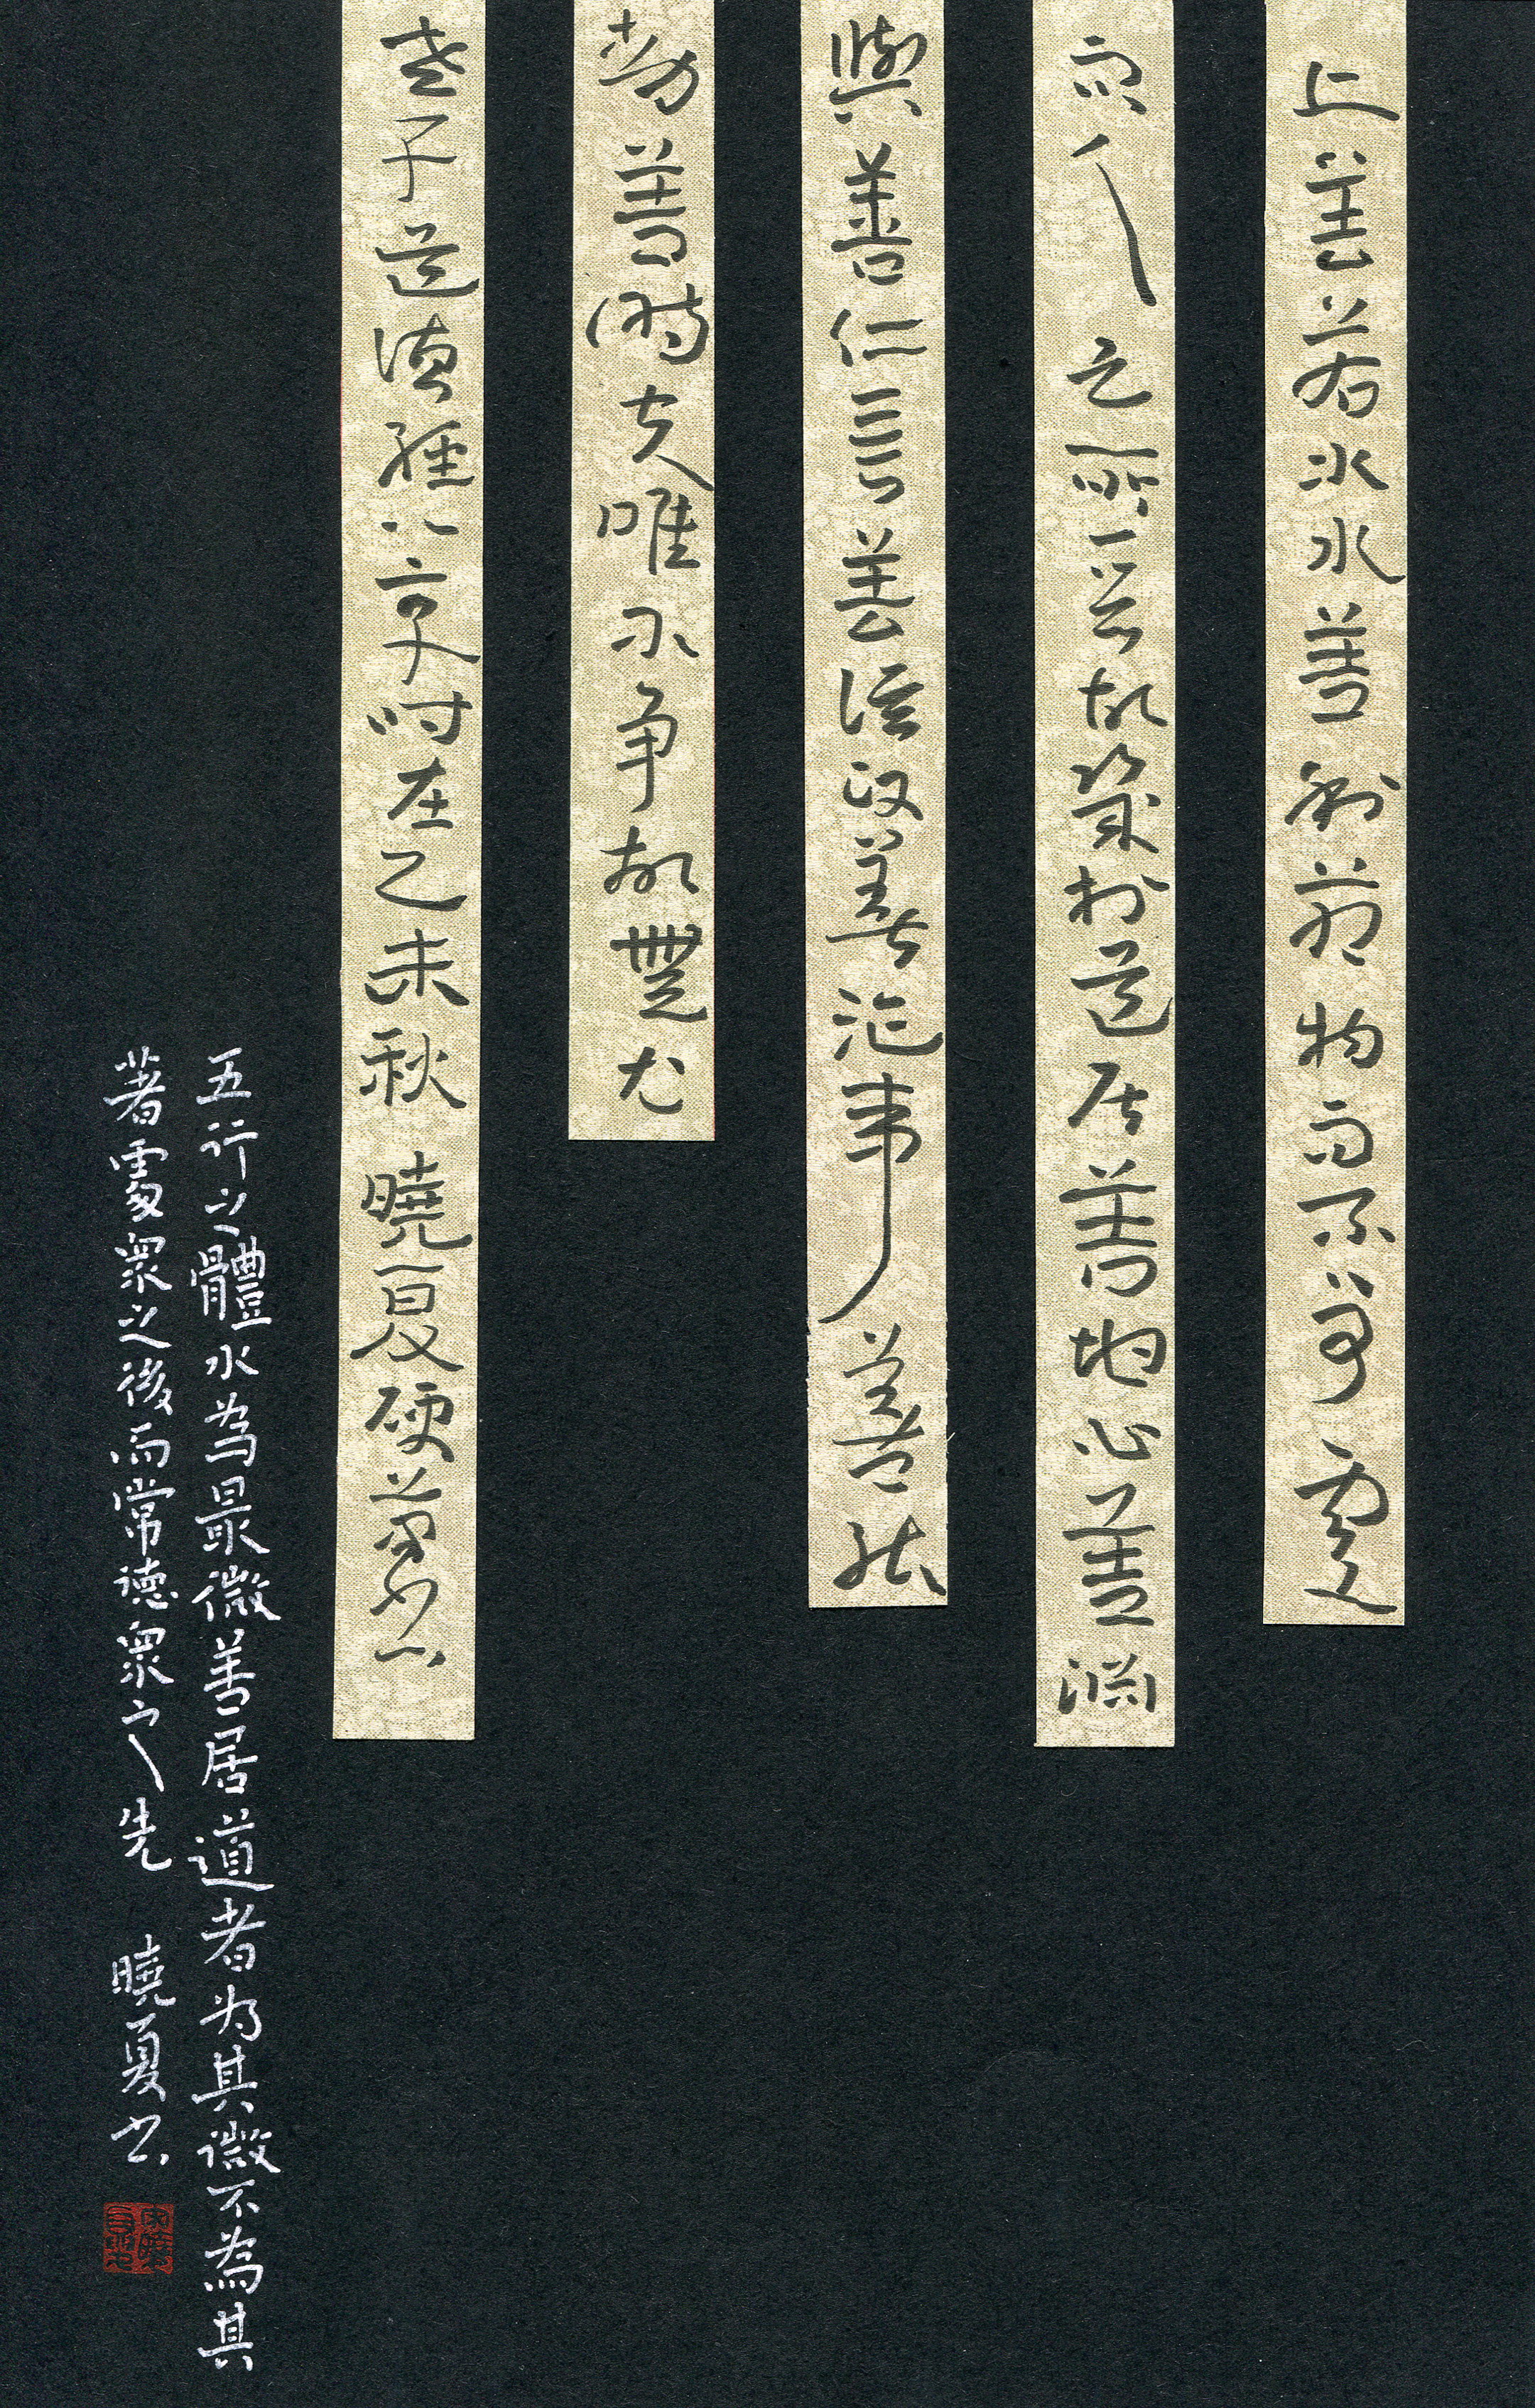 上善若水水善利萬物而不爭處
衆人之所惡故幾於道居善地心善淵
與善仁言善信政善治事善能
動善時夫唯不争故無尤
老子道德經八章时在乙未秋曉夏硬筆
五行之體水為最微善居道者为其微不為其
著處衆之後而常德衆之先 曉夏书